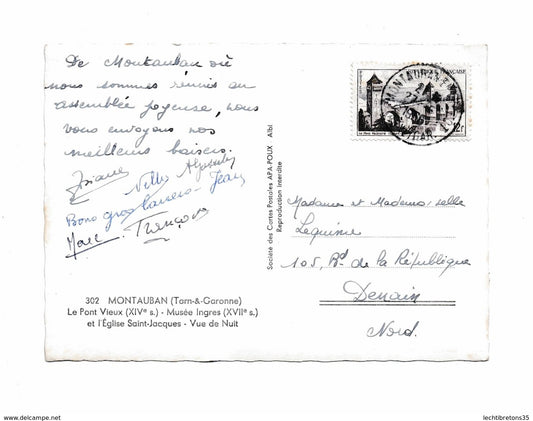 De Montauban où
nous sommes réunis en
assemblée joyeuse, nous
vous envoyons nos
meilleurs baisers.
Josiane
Bons gros baisers - Jean
Marc. François
302 MONTAUBAN (Tarn-&-Garonne)
Le Pont Vieux (XIVe s.) - Musée Ingres (XVIIe s.)
et l'Église Saint-Jacques - Vue de Nuit
Société des Cartes Postales APA-POUX Albi
Reproduction Interdite
MONTAUBAN
FRANÇAISE
12F
Madame et Mademoiselle
Lequime
105, Bd de la République
Denain
Nord.
www.delcampe.net
lechtibretons35